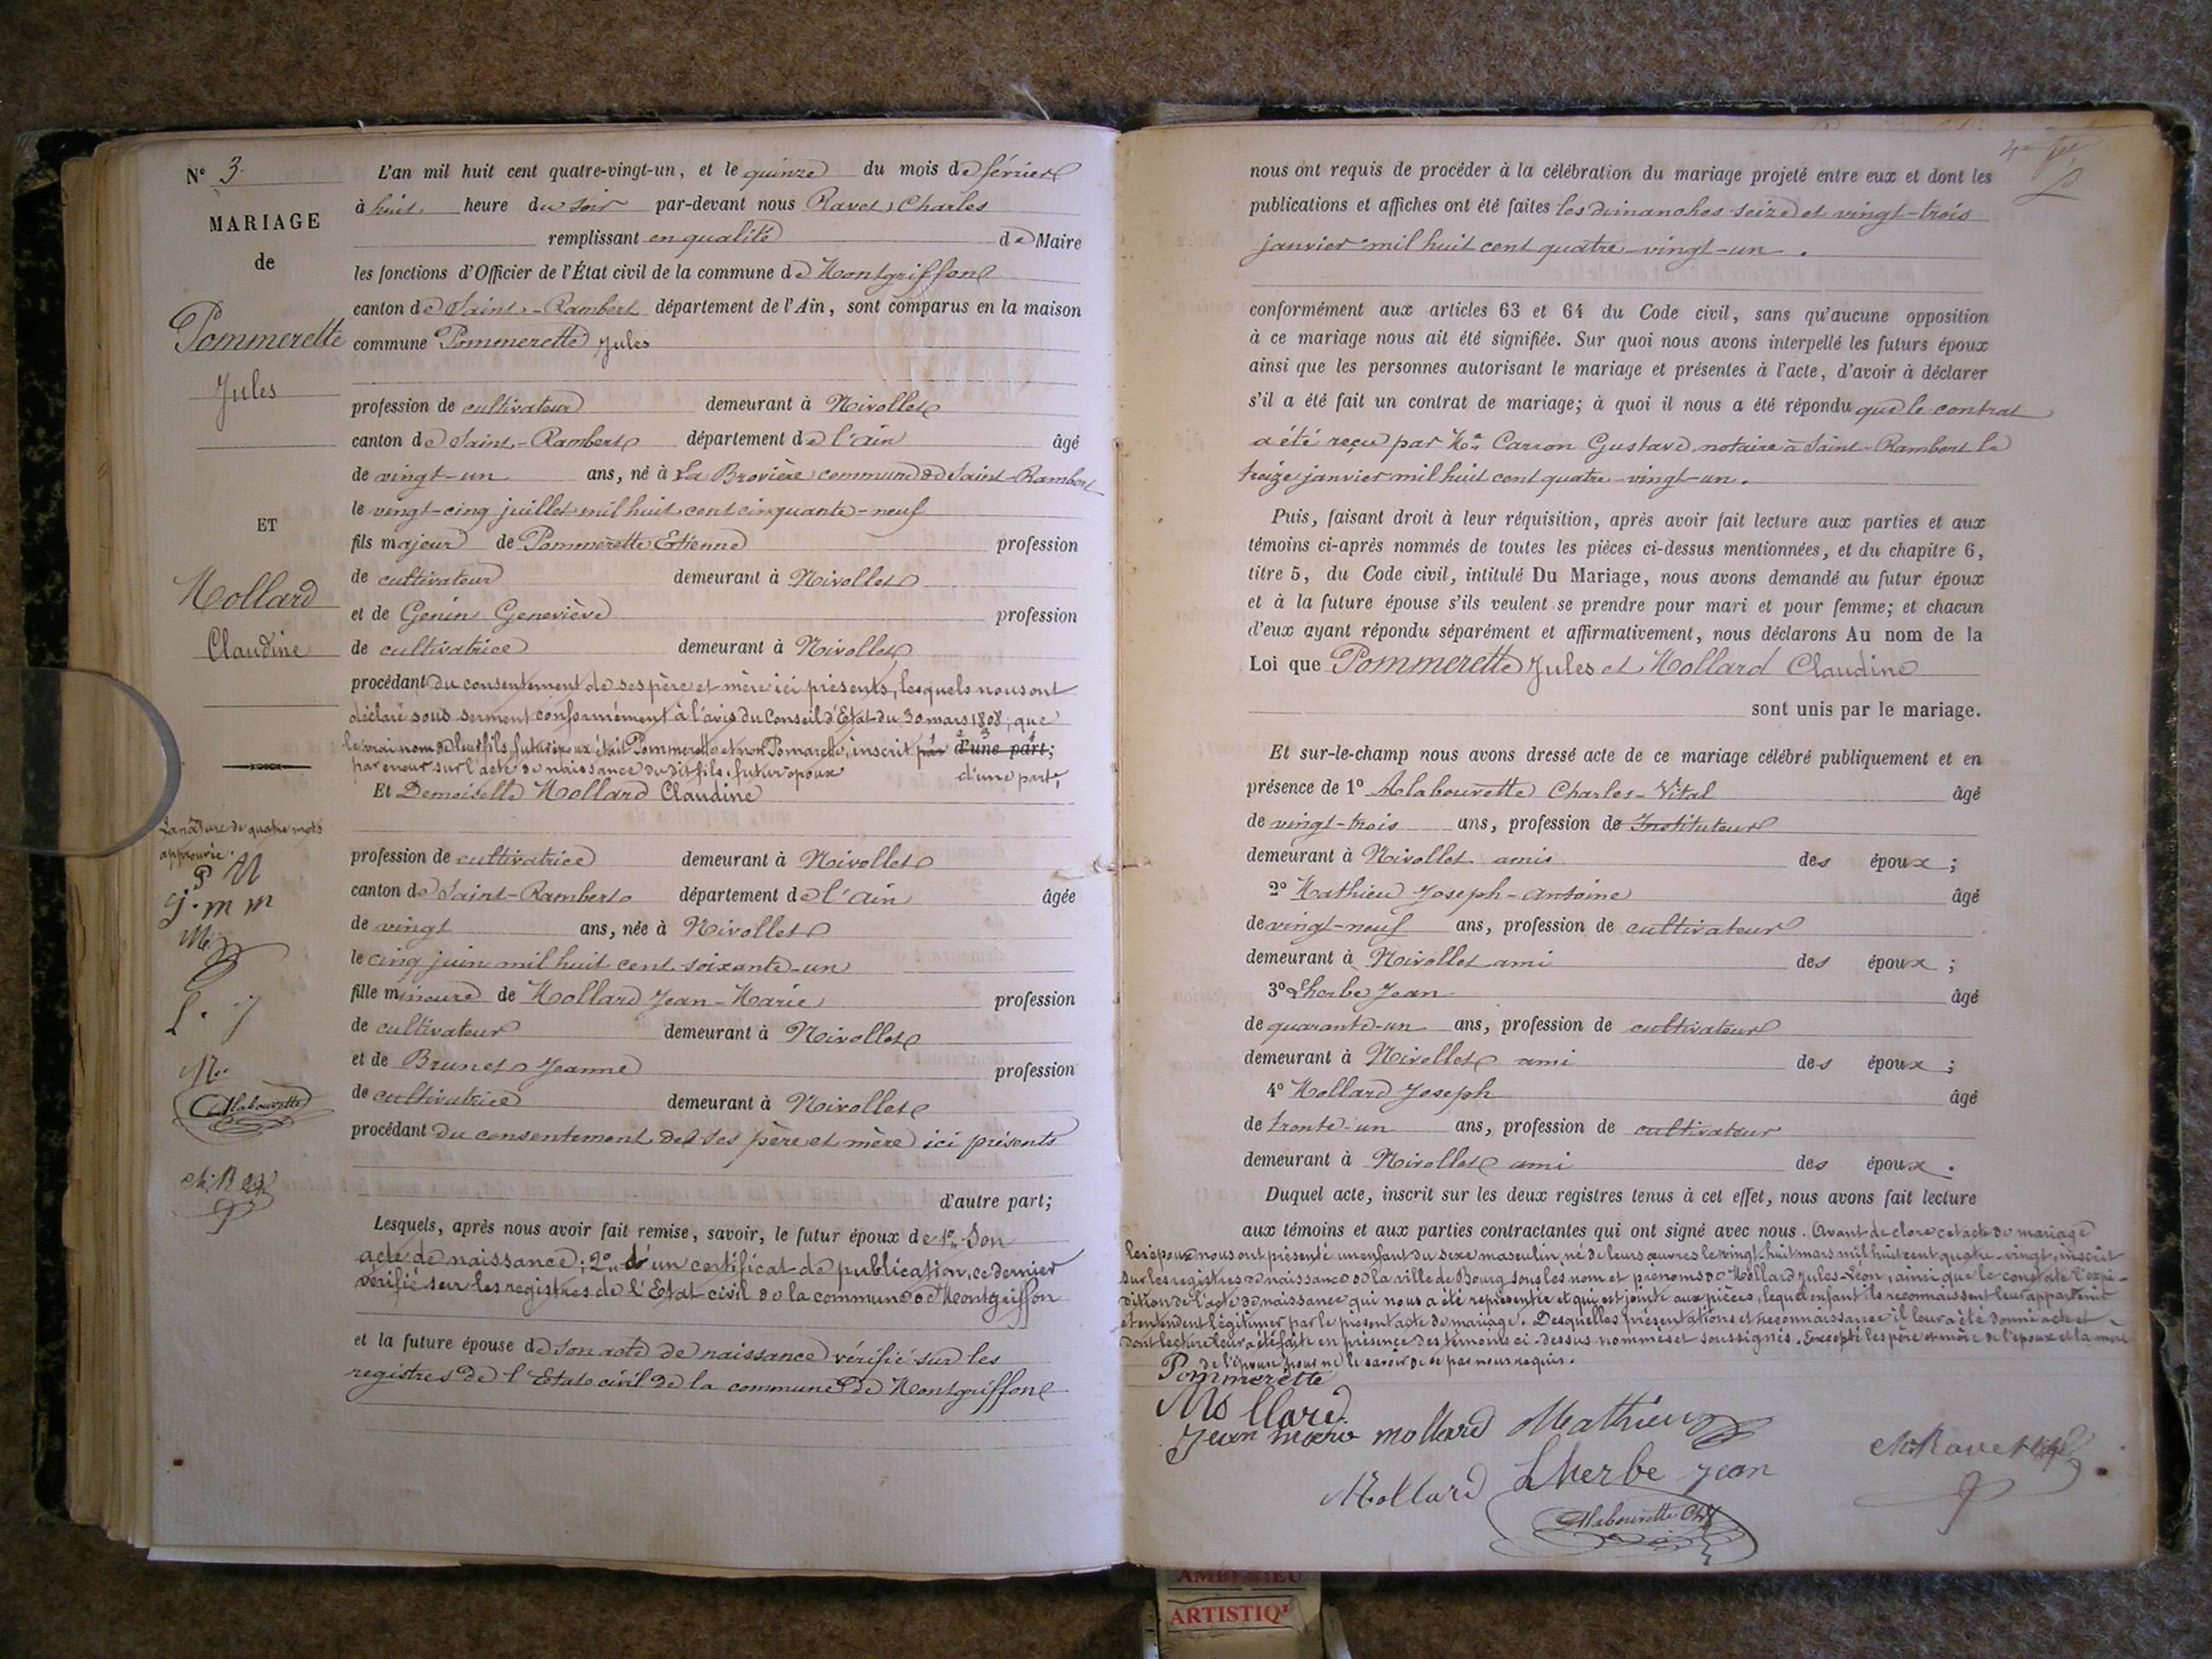 N° 3.
MARIAGE
de
Pommerette
Jules
ET
Mollard
Claudine
La rature de quatre mots
approuvée.
P M
J. m m
M.
L. J
M.
Alabouvette
ch. R
L'an mil huit cent quatre-vingt-un, et le quinze du mois de février
à huit heure du soir par-devant nous Ravet Charles
remplissant en qualité de Maire
les fonctions d'Officier de l'État civil de la commune de Montgriffon
canton de Saint-Rambert département de l'Ain, sont comparus en la maison
commune Pommerette Jules
profession de cultivateur demeurant à Nivollet
canton de Saint-Rambert département de l'ain âgé
de vingt-un ans, né à La Brovière commune de Saint-Rambert
le vingt-cinq juillet mil huit cent cinquante-neuf
fils majeur de Pommerette Etienne profession
de cultivateur demeurant à Nivollet
et de Genin Geneviève profession
de cultivatrice demeurant à Nivollet
procédant du consentement de ses père et mère ici présents, lesquels nous ont
déclaré sous serment conformément à l'avis du Conseil d'Etat du 30 mars 1808, que
le vrai nom de leur fils, futur époux était Pommerette et non Pomarette, inscrit par d'une part;
par erreur sur l'acte de naissance du dit fils, futur époux d'une part,
Et Demoiselle Mollard Claudine
profession de cultivatrice demeurant à Nivollet
canton de Saint-Rambert département de l'ain âgée
de vingt ans, née à Nivollet
le cinq juin mil huit cent soixante-un
fille mineure de Mollard Jean-Marie profession
de cultivateur demeurant à Nivollet
et de Brunet Jeanne profession
de cultivatrice demeurant à Nivollet
procédant du consentement de ses père et mère ici présents
d'autre part;
Lesquels, après nous avoir fait remise, savoir, le futur époux de 1° Son
acte de naissance; 2° d'un certificat de publication, ce dernier
vérifié sur les registres de l'Etat-civil de la commune de Montgriffon
et la future épouse de son acte de naissance vérifié sur les
registres de l'Etat civil de la commune de Montgriffon
nous ont requis de procéder à la célébration du mariage projeté entre eux et dont les
publications et affiches ont été faites les dimanches seize et vingt-trois
janvier mil huit cent quatre-vingt-un.
conformément aux articles 63 et 64 du Code civil, sans qu'aucune opposition
à ce mariage nous ait été signifiée. Sur quoi nous avons interpellé les futurs époux
ainsi que les personnes autorisant le mariage et présentes à l'acte, d'avoir à déclarer
s'il a été fait un contrat de mariage; à quoi il nous a été répondu que le contrat
a été reçu par Me Carron Gustave, notaire à Saint-Rambert le
treize janvier mil huit cent quatre-vingt-un.
Puis, faisant droit à leur réquisition, après avoir fait lecture aux parties et aux
témoins ci-après nommés de toutes les pièces ci-dessus mentionnées, et du chapitre 6,
titre 5, du Code civil, intitulé Du Mariage, nous avons demandé au futur époux
et à la future épouse s'ils veulent se prendre pour mari et pour femme; et chacun
d'eux ayant répondu séparément et affirmativement, nous déclarons Au nom de la
Loi que Pommerette Jules et Mollard Claudine
sont unis par le mariage.
Et sur-le-champ nous avons dressé acte de ce mariage célébré publiquement et en
présence de 1° Alabouvette Charles-Vital âgé
de vingt-trois ans, profession de Instituteur
demeurant à Nivollet amis des époux;
2° Mathieu Joseph-Antoine âgé
de vingt-neuf ans, profession de cultivateur
demeurant à Nivollet ami des époux;
3° Lherbe Jean âgé
de quarante-un ans, profession de cultivateur
demeurant à Nivollet ami des époux;
4° Mollard Joseph âgé
de trente-un ans, profession de cultivateur
demeurant à Nivollet ami des époux.
Duquel acte, inscrit sur les deux registres tenus à cet effet, nous avons fait lecture
aux témoins et aux parties contractantes qui ont signé avec nous. Avant de clore cet acte de mariage
les époux nous ont présenté un enfant du sexe masculin, né de leurs œuvres le vingt-huit mars mil huit cent quatre-vingt, inscrit
sur les registres de naissance de la ville de Bourg sous les nom et prénoms de Mollard Jules-Léon, ainsi que le constate l'expé-
dition de l'acte de naissance qui nous a été représentée et qui est jointe aux pièces, lequel enfant ils reconnaissent leur appartenir
et entendent légitimer par le présent acte de mariage. Desquelles présentations et reconnaissance il leur a été donné acte et
dont lecture leur a été faite en présence des témoins ci-dessus nommés et soussignés. Excepté les père et mère de l'époux et la mère
de l'épouse pour ne le savoir de ce par nous requis.
Pommerette
Mollard
Jean marie mollard Mathieu
Mollard Lherbe Jean
ch. Ravet
Alabouvette Ch
AMBERIEU
ARTISTIQ